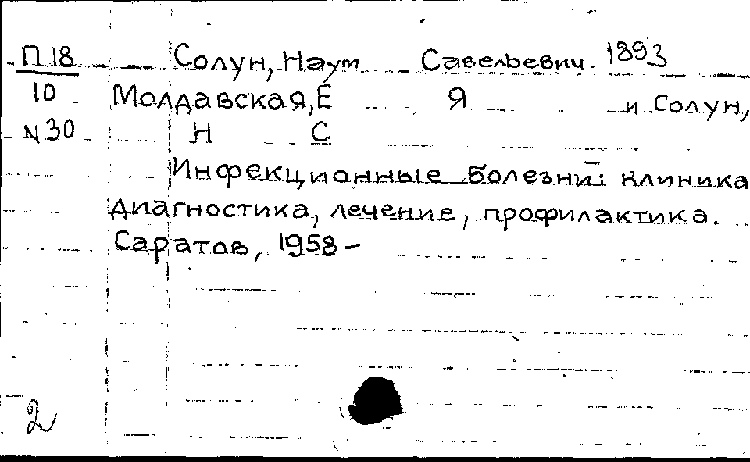 П 18 Солун, Наум Савельевич. 1893
10 Молдавская, Е Я и Солун,
N 30 Н С
Инфекционные болезни: клиника
диагностика, лечение, профилактика.
Саратов, 1958 –
2